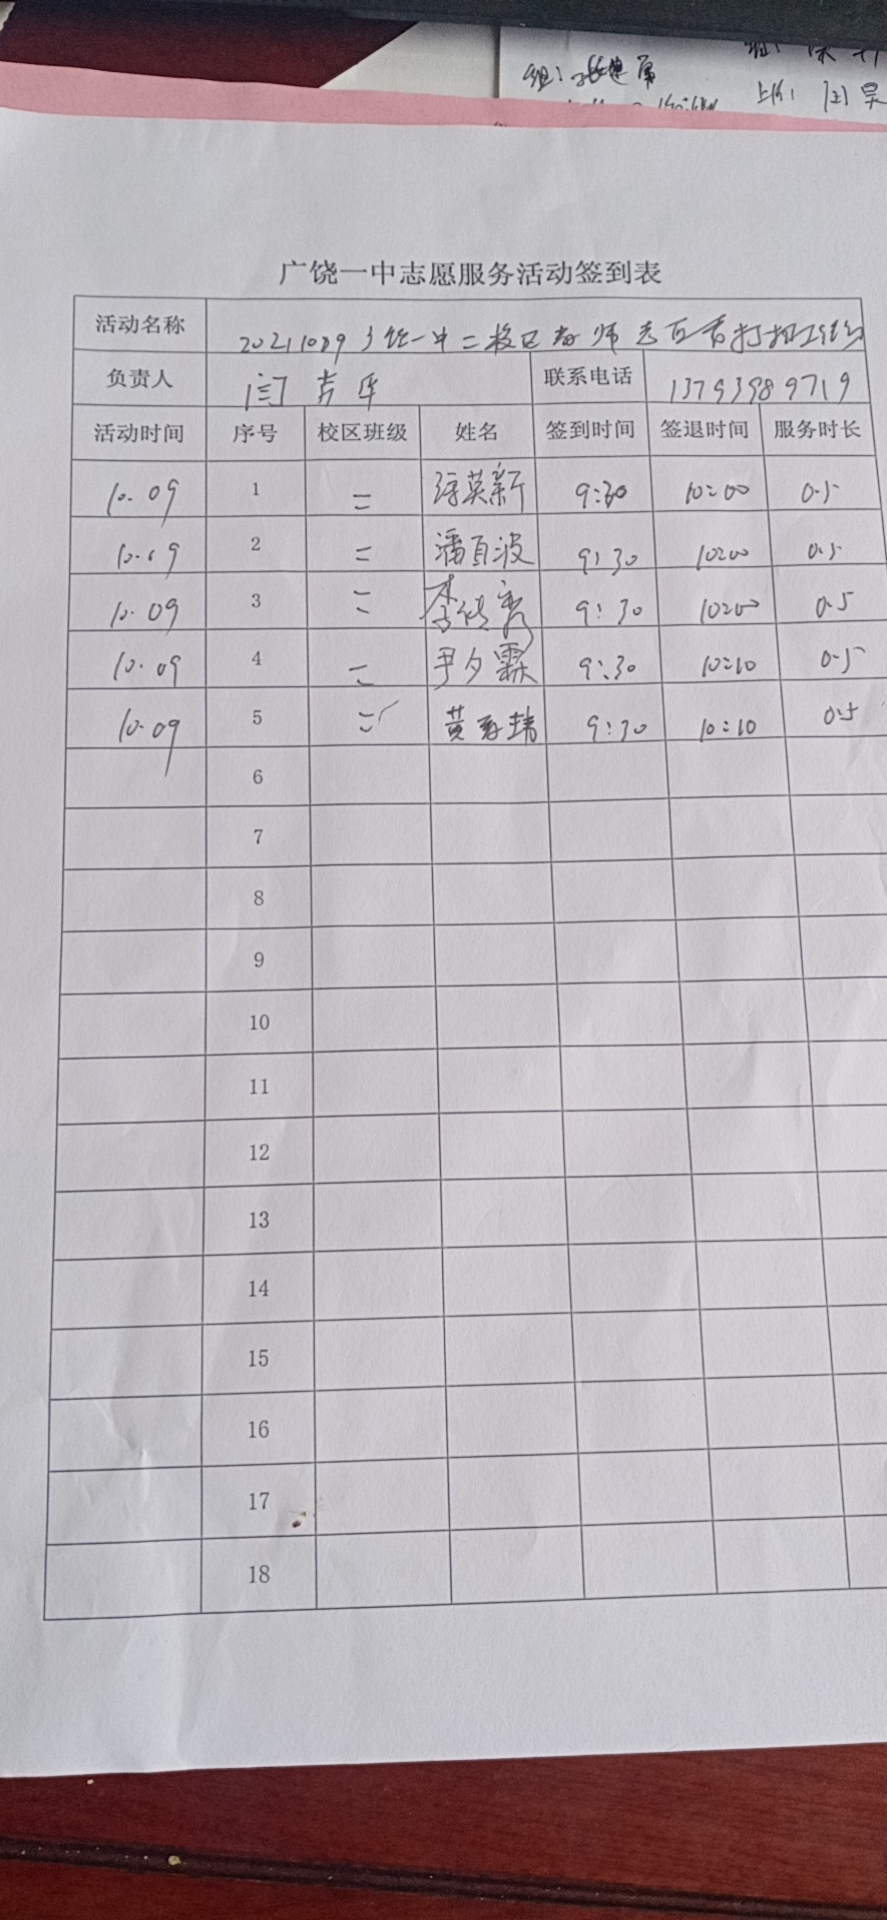 组:
上议:
广饶一中志愿服务活动签到表
活动名称 20211009广饶一中二校区教师志愿者打扫
负责人 闫 联系电话 13793989719
活动时间 序号 校区班级 姓名 签到时间 签退时间 服务时长
10.09 1 二 英新 9:30 10:00 0.5
10.09 2 二 潘百波 9:30 10:00 0.5
10.09 3 二 李 9:30 10:00 0.5
10.09 4 二 尹夕霖 9:30 10:10 0.5
10.09 5 二 黄 9:30 10:10 0.5
6
7
8
9
10
11
12
13
14
15
16
17
18